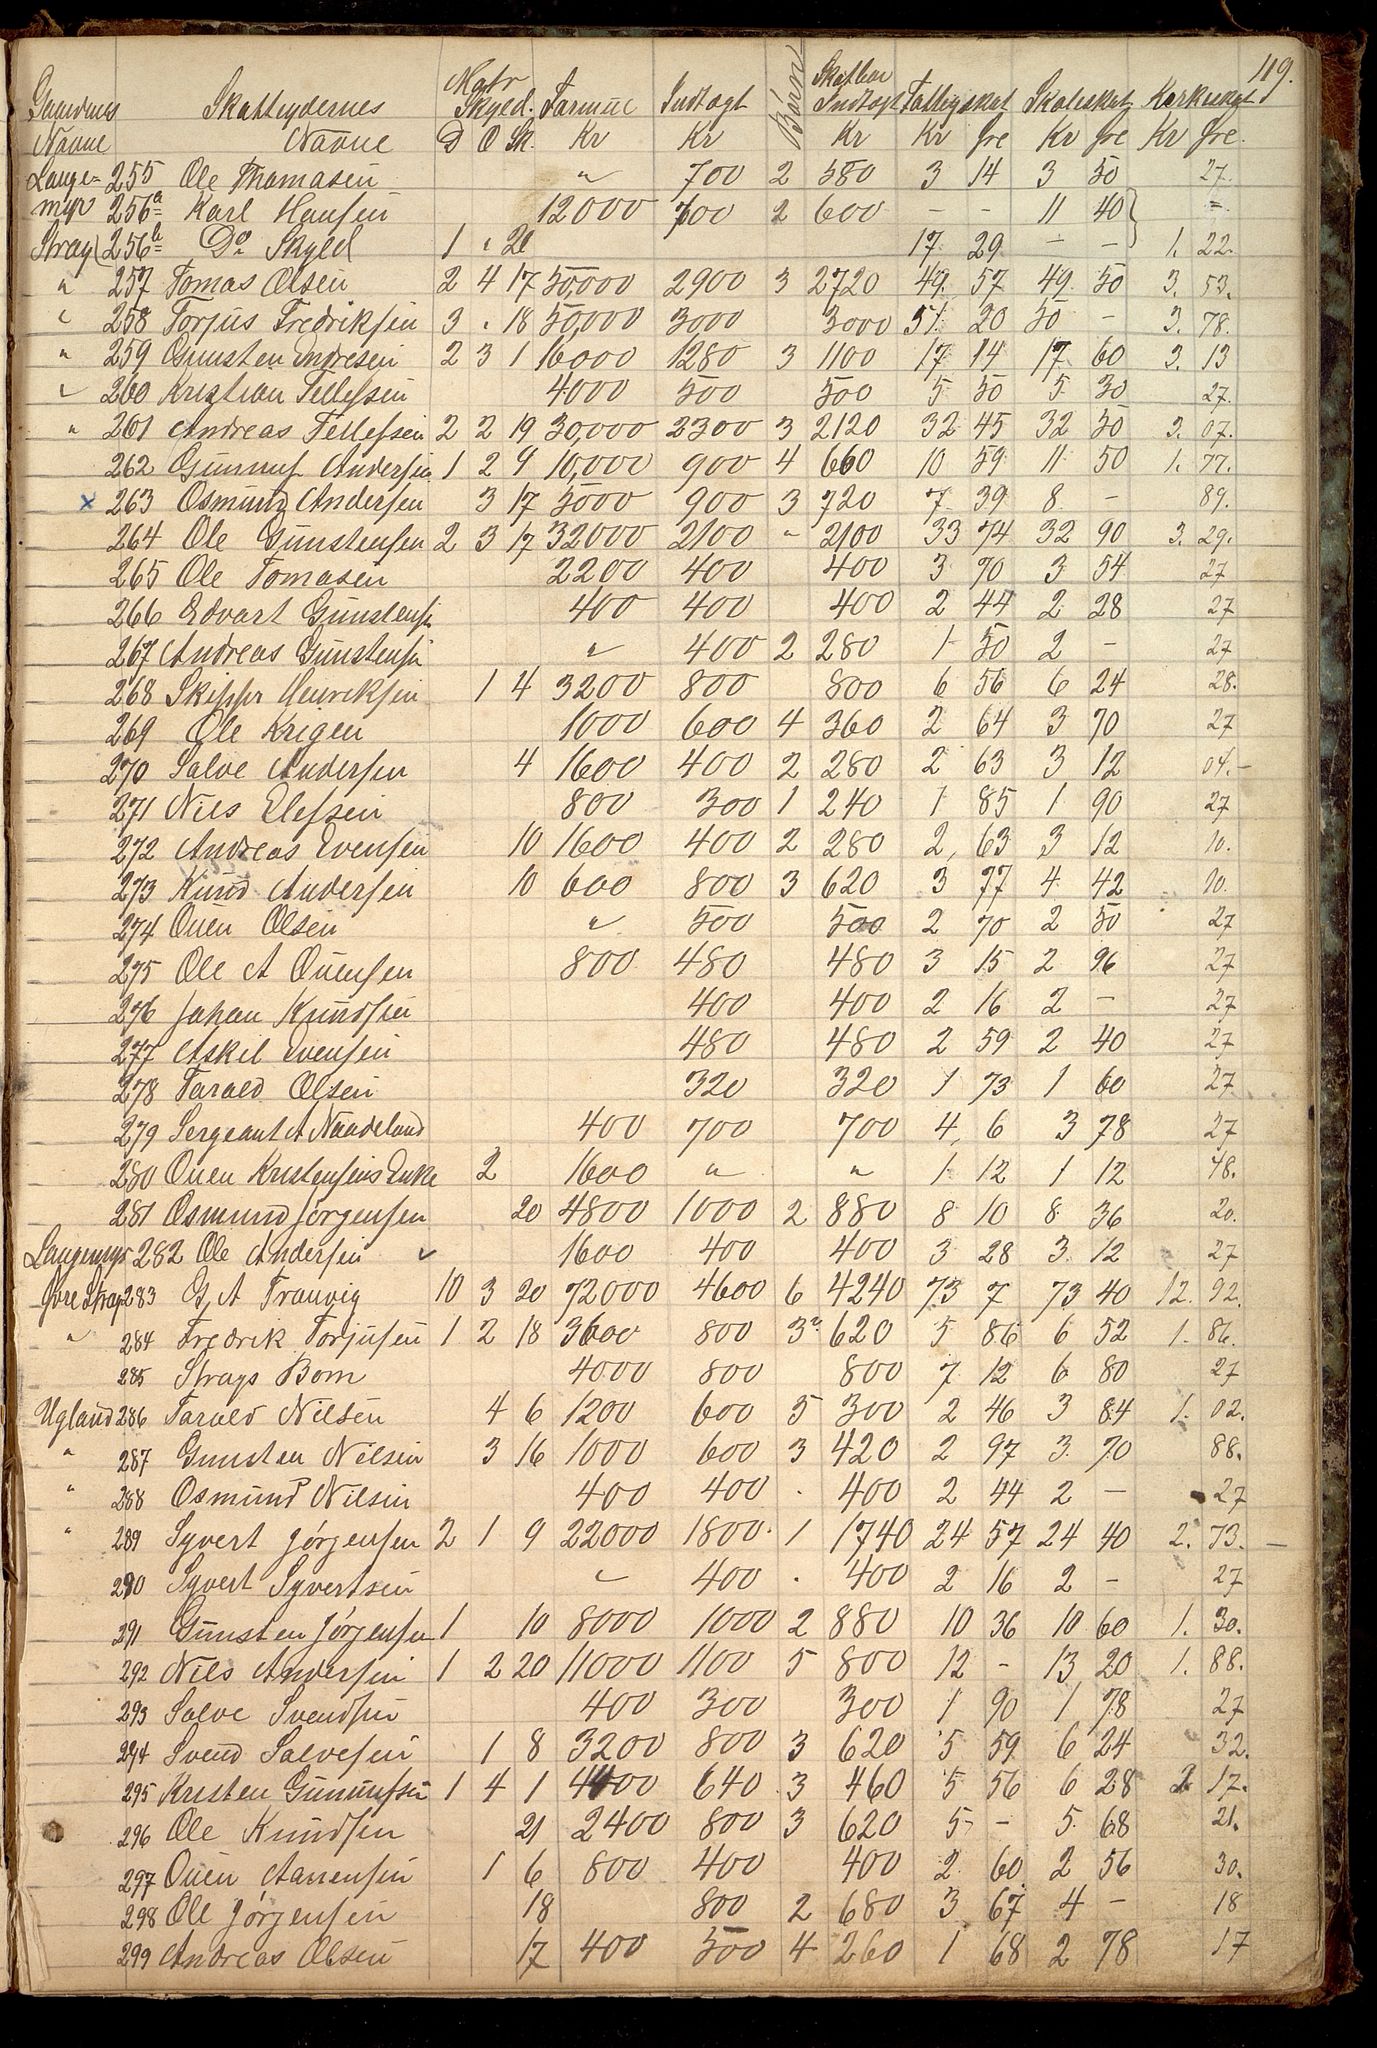 119.
Gaardnes Skatteydernes Matr Skyld. Formue Indtægt Børn Skatbar Indtægt Fattigskat Skoleskat Kerkeskat
Navne Navne D O Sk. Kr Kr Kr Kr øre Kr øre Kr øre.
Lange- 255 Ole Thomasen " 700 2 580 3 14 3 50 27
myr 256a Karl Hansen 12000 700 2 600 - - 11 40 "
Stray 256b Do Skyld 1 " 20 17 29 - - 1. 22.
" 257 Tomas Olsen 2 4 17 50,000 2900 3 2720 49 57 49 50 3. 53.
" 258 Torjus Fredriksen 3 . 18 50,000 3000 3000 51 20 50 - 3. 78.
" 259 Gunsten Andresen 2 3 1 16000 1280 3 1100 17 14 17 60 3. 13
" 260 Kristian Tellefsen 4000 500 500 5 50 5 30 27.
" 261 Andreas Tellefsen 2 2 19 30,000 2300 3 2120 32 45 32 50 3. 07.
262 Gunnuf Andersen 1 2 9 10,000 900 4 660 10 59 11 50 1. 77.
x 263 Osmund Andersen 3 17 5000 900 3 720 7 39 8 - 89.
264 Ole Gunstensen 2 3 17 32000 2100 " 2100 33 74 32 90 3. 29.
265 Ole Tomasen 2200 400 400 3 70 3 54 27
266 Edvart Gunstensen 400 400 400 2 44 2 28 27
267 Andreas Gunstensen " 400 2 280 1 50 2 - 27
268 Skipper Henriksen 1 4 3200 800 800 6 56 6 24 28.
269 Ole Krigen 1000 600 4 360 2 64 3 70 27
270 Salve Andersen 4 1600 400 2 280 2 63 3 12 04.-
271 Nils Elefsen 800 300 1 240 1 85 1 90 27
272 Andreas Evensen 10 1600 400 2 280 2, 63 3 12 10.
273 Knud Andersen 10 600 800 3 620 3 77 4 42 10.
274 Ouen Olsen " 500 500 2 70 2 50 27
275 Ole A Ouensen 800 480 480 3 15 2 96 27
276 Johan Knudsen 400 400 2 16 2 - 27
277 Askel Evensen 480 480 2 59 2 40 27
278 Tarald Olsen 320 320 1 73 1 60 27
279 Sergeant A Naadeland 400 700 700 4, 6 3 78 27
280 Ouen Kristensens Enke 2 1600 " " 1 12 1 12 48.
281 Osmund Jørgensen 20 4800 1000 2 880 8 10 8 36 20.
Langemyr 282 Ole Andersen ✓ 1600 400 400 3 28 3 12 27
Øvre Stray 283 G A Trauvig 10 3 20 72000 4600 6 4240 73 7 73 40 12. 92.
" 284 Fredrik Torjusen 1 2 18 3600 800 3 620 5 86 6 52 1. 86.
285 Strays Bom 4000 800 800 7 12 6 80 27
Ugland 286 Tarald Nilsen 4 6 1200 600 5 300 2 46 3 84 1. 02.
" 287 Gunsten Nilsen 3 16 1000 600 3 420 2 97 3 70 88.
" 288 Osmund Nilsen 400 400 . 400 2 44 2 - 27
" 289 Syvert Jørgensen 2 1 9 22000 1800 1 1740 24 57 24 40 2. 73. -
290 Syvert Syvertsen " 400 . 400 2 16 2 - 27
291 Gunsten Jørgensen 1 10 8000 1000 2 880 10 36 10 60 1. 30.
292 Nils Andersen 1 2 20 11000 1100 5 800 12 - 13 20 1. 88.
293 Salve Svendsen 400 300 300 1 90 1 78 27
294 Svend Salvesen 1 8 3200 800 3 620 5 59 6 24 32.
295 Kristen Gunnufsen 1 4 1 4400 640 3 460 5 56 6 28 2 17.
296 Ole Knudsen 21 2400 800 3 620 5 - 5 68 21.
297 Ouen Aanensen 1 6 800 400 400 2 60 2 56 30.
298 Ole Jørgensen 18 800 2 680 3 67 4 - 18
299 Andreas Olsen 17 400 500 4 260 1 68 2 78 17